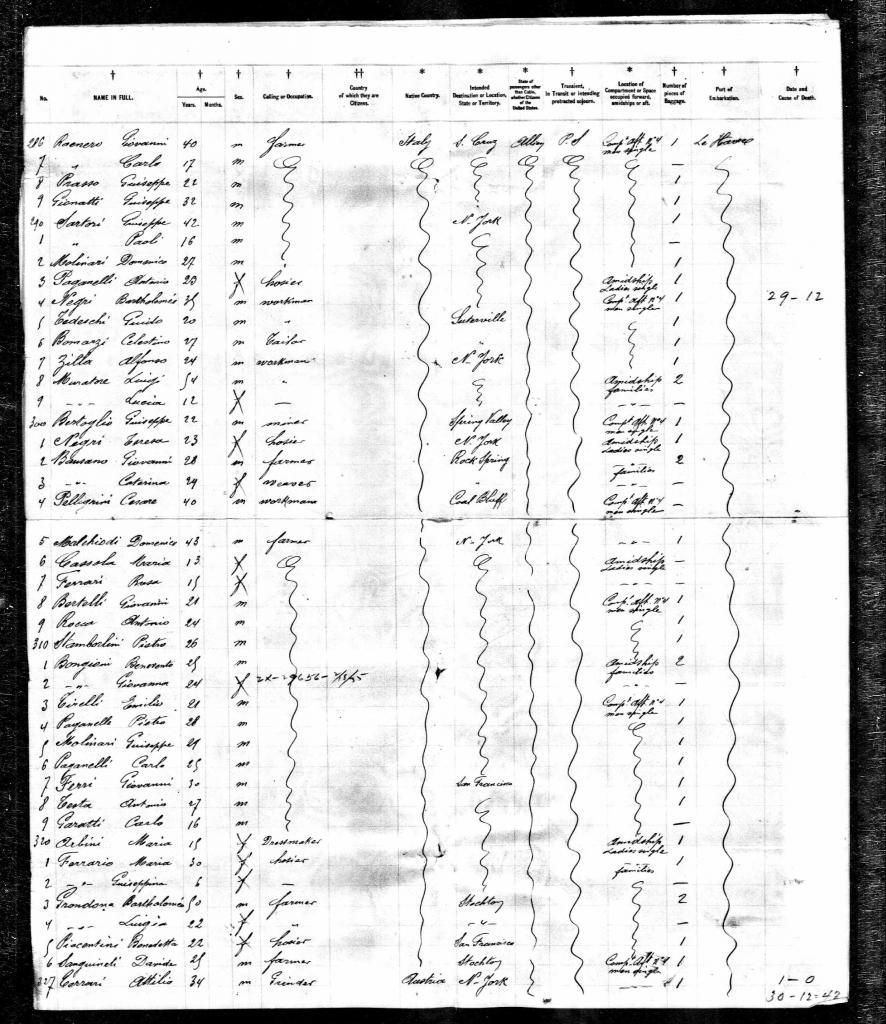 No. NAME IN FULL. Age. Years. Months. Sex. Calling or Occupation. Country of which they are Citizens. Native Country. Intended Destination or Location, State or Territory. State of passengers other than Cabin, whether Citizens of the United States. Transient, In Transit or intending protracted sojourn. Location of Compartment or Space occupied forward, amidships or aft. Number of pieces of Baggage. Port of Embarkation. Date and Cause of Death.
286 Giovanni 40 m farmer Italy S. Cruz P. S Comp! Aft. No 4 men single 1 Le Havre
7 " Carlo 17 m —
8 Prasso Guiseppe 22 m 1
9 Gionatti Guiseppe 32 m 1
290 Sartori Guiseppe 42 m N. York 1
1 " Paoli 16 m —
2 Molinari Domenico 27 m 1
3 Paganelli Antonio 23 f hosier Amidship Ladies single 1
4 Negri Bartholomeo 35 m workman Comp! Aft No 4 men single 1 29-12
5 Tedeschi Guido 20 m " 1
6 Bomarzi Celestino 27 m Tailor " 1
7 Zilla Alfonso 24 m workman N. York 1
8 Muratore Luigi 54 m " Amidship families 2
9 -"- Lucia 12 f — -"-
300 Bertoglio Guiseppe 22 m miner Spring Valley Comp! Aft No 4 men single 1
1 Negri Teresa 23 f hosier N. York Amidship Ladies single 1
2 Bausano Giovanni 28 m farmer Rock Spring -"- families 2
3 -"- Caterina 29 f weaver " —
4 Pellegrini Cesare 40 m workman Coal Bluff Comp! Aft No 4 men single —
5 Malchiodi Domenico 43 m farmer N. York -"- 1
6 Gassola Maria 13 f Amidship Ladies single —
7 Ferrari Rosa 15 f -"- —
8 Bertelli Giovanni 21 m Comp! Aft. No 4 men single 1
9 Rocca Antonio 24 m 1
310 Stambolini Pietro 26 m 1
1 Bongioni Benvenuto 25 m Amidship families 2
2 -"- Giovanna 24 f 2X-29656-7/13/25 -"-
3 Tirelli Emilio 21 m Comp! Aft No 4 men single 1
4 Paganelli Pietro 28 m 1
5 Molinari Guiseppe 21 m 1
6 Paganelli Carlo 25 m 1
7 Ferri Giovanni 30 m San Francisco 1
8 Testa Antonio 27 m 1
9 Garatti Carlo 16 m —
320 Orbini Maria 15 f Dressmaker Amidship Ladies single 1
1 Ferrario Maria 30 f hosier -"- families 1
2 -"- Guiseppina 6 f — —
3 Grondona Bartholomeo 50 m farmer Stockton 2
4 -"- Luigia 22 f " -"- —
5 Piacentini Benedetta 22 f hosier San Francisco 1
6 Sanguineti Davide 25 m farmer Stockton Comp! Aft No 4 men single 1
327 Attilio 34 m Grinder Austria N. York -"- 1 1-0
30-12-42